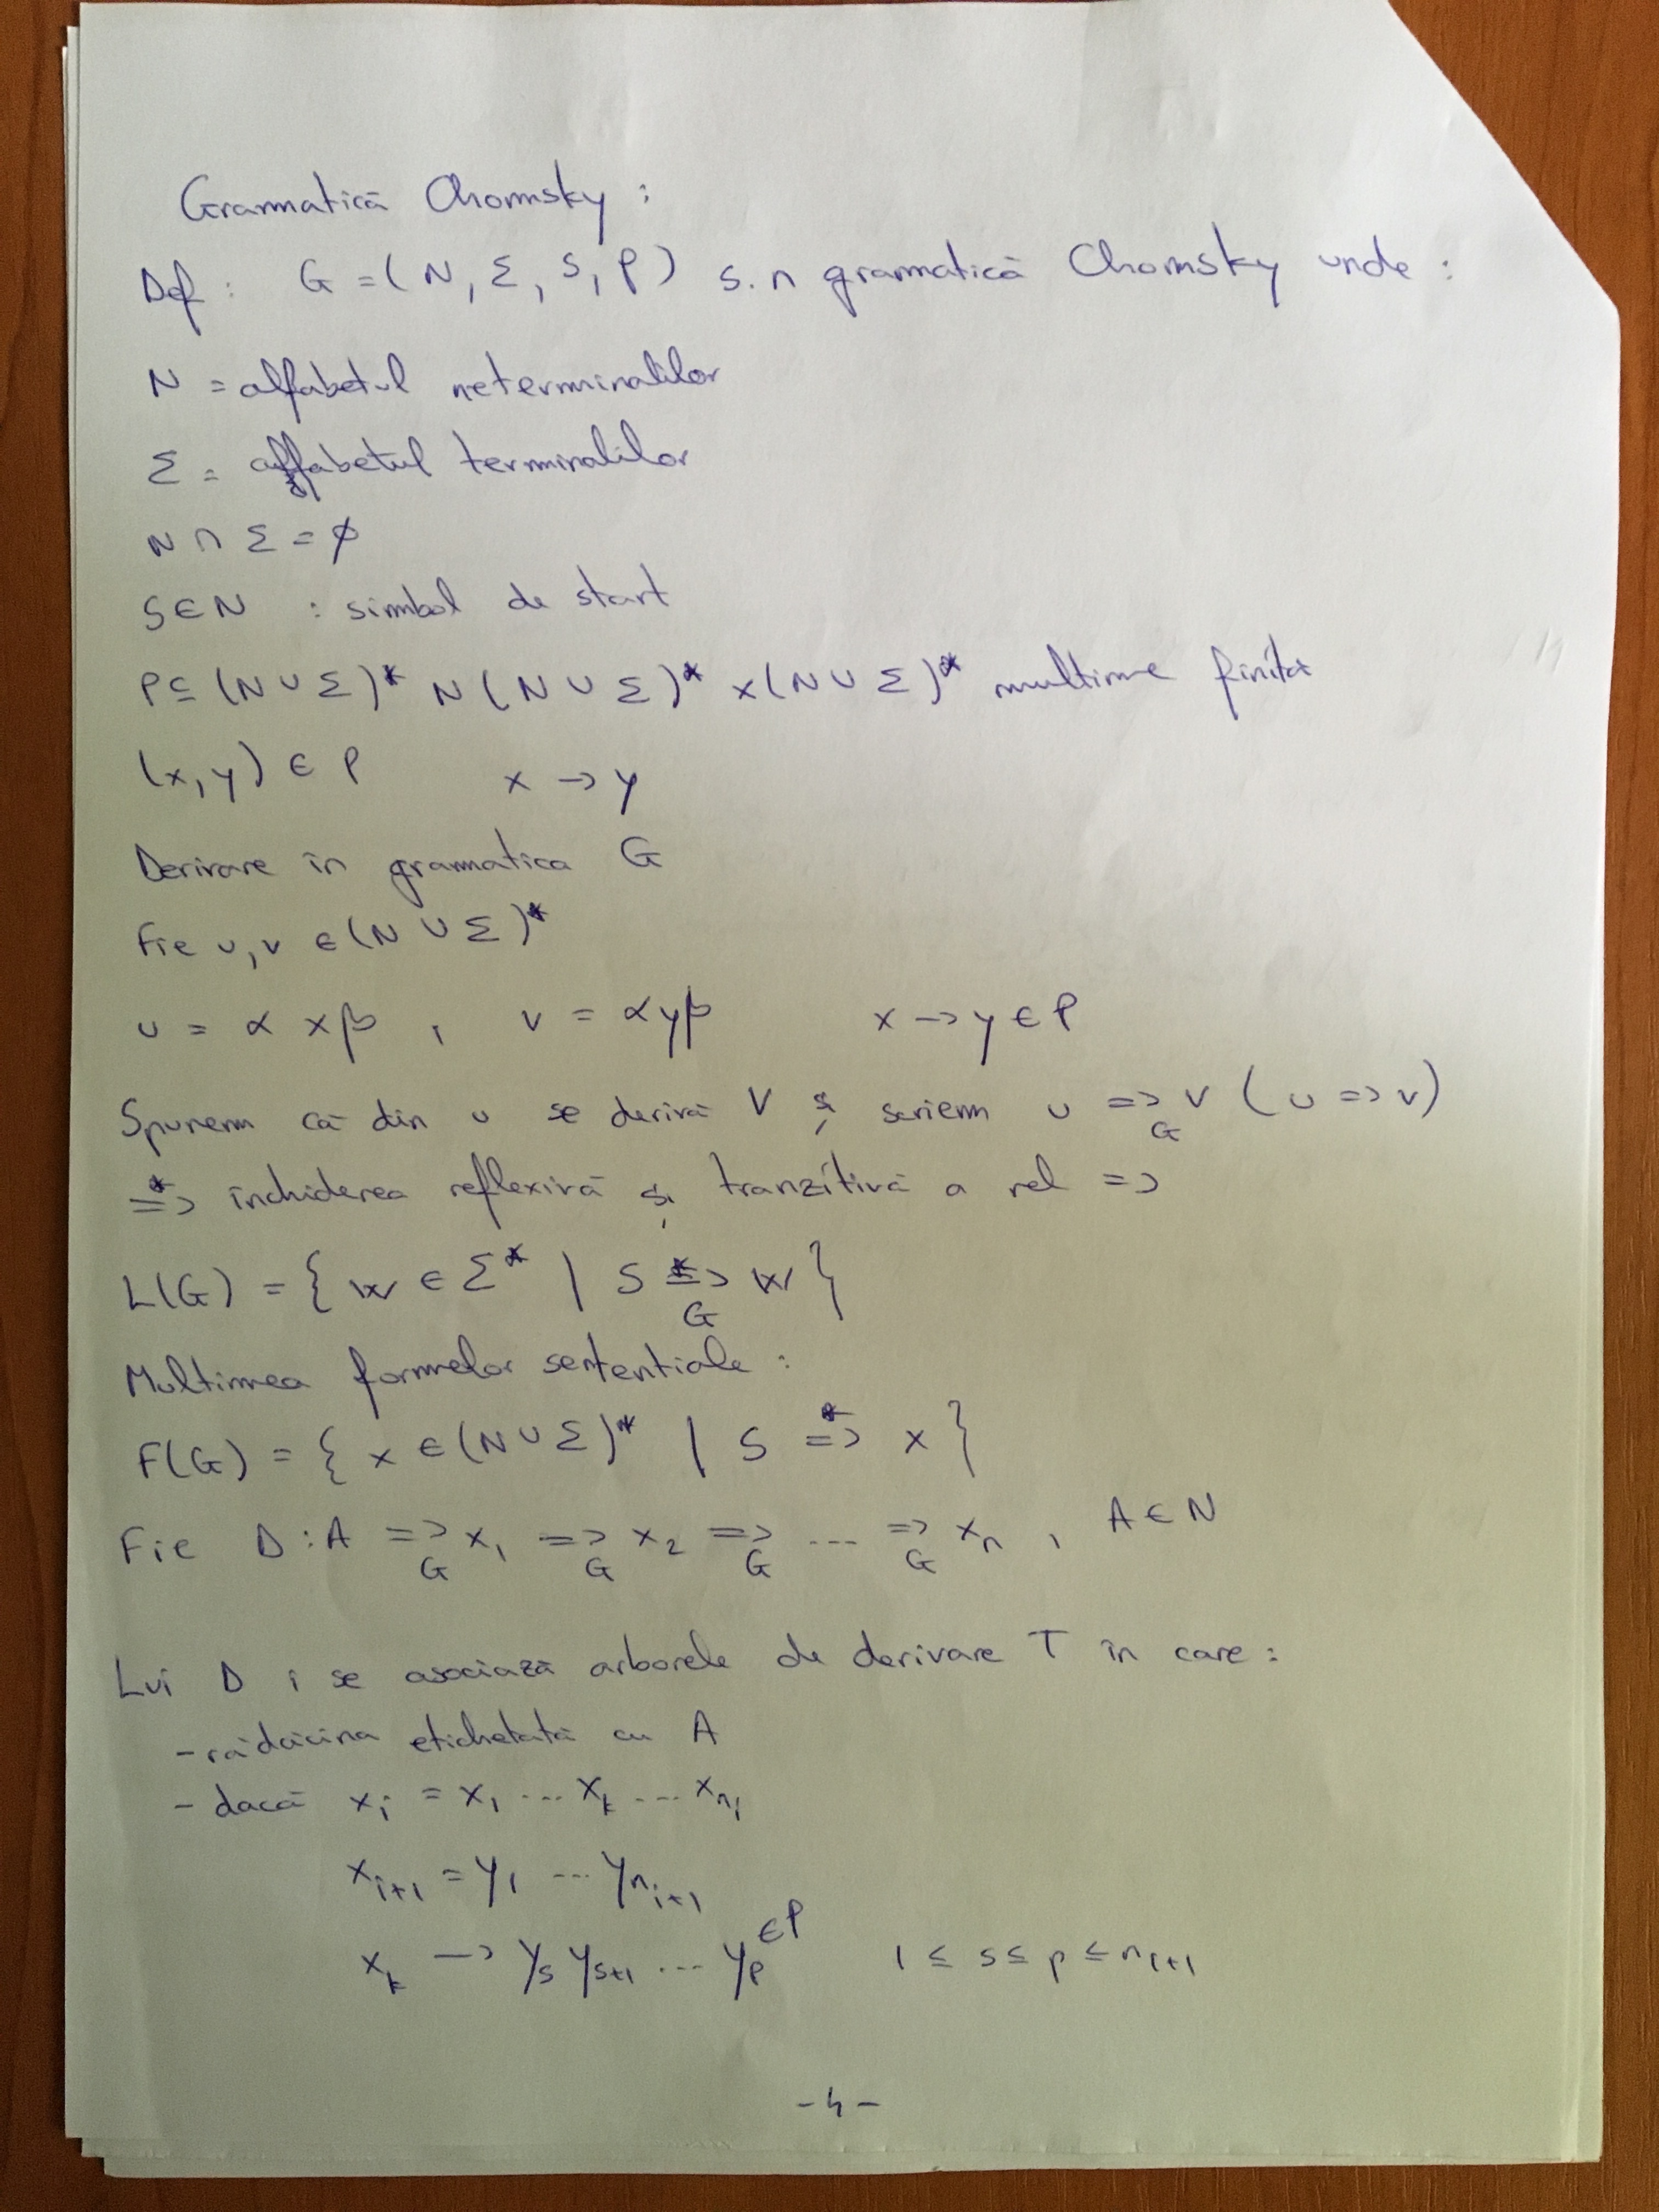 Gramatică Chomsky :
Def : G = ( N, Σ, S, P ) s.n gramatică Chomsky unde :
N = alfabetul neterminalilor
Σ = alfabetul terminalilor
N ∩ Σ = ∅
S ∈ N : simbol de start
P ⊆ (N ∪ Σ)* N (N ∪ Σ)* x (N ∪ Σ)* multime finita
(x, y) ∈ P x → y
Derivare în gramatica G
Fie u, v ∈ (N ∪ Σ)*
u = α x β , v = α y β x → y ∈ P
Spunem că din u se derivă V și scriem u =>G v ( u => v)
*=> închiderea reflexivă și tranzitivă a rel =>
L(G) = { w ∈ Σ* | S *=>G w }
Multimea formelor sententiale :
F(G) = { x ∈ (N ∪ Σ)* | S *=> x }
Fie D : A =>G x₁ =>G x₂ =>G ... =>G xₙ , A ∈ N
Lui D i se asociază arborele de derivare T în care :
- rădăcina etichetată cu A
- dacă xᵢ = x₁ ... xₖ ... xₙᵢ
xᵢ₊₁ = y₁ ... yₙᵢ₊₁
xₖ → yₛ yₛ₊₁ ... yₚ ∈ P 1 ≤ s ≤ p ≤ nᵢ₊₁
- 4 -